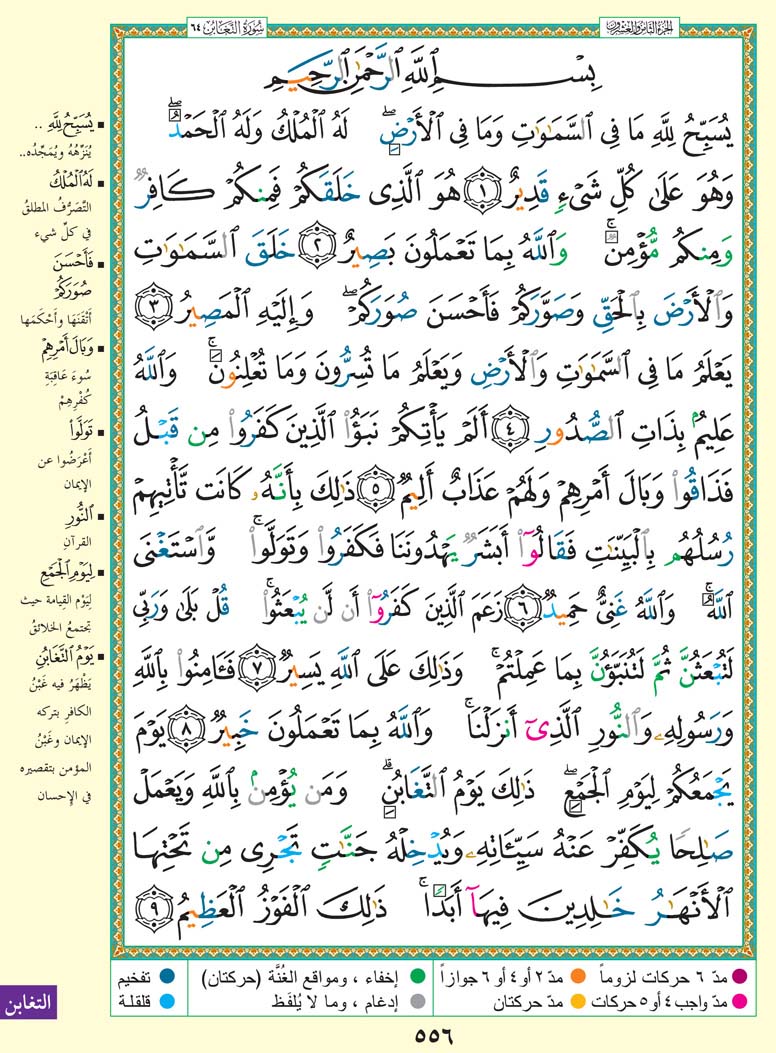 سُورَةُ التَّغَابُن ٦٤
الجُزْءُ الثَّامِنُ وَالعِشْرُونَ
بِسْمِ ٱللَّهِ ٱلرَّحْمَٰنِ ٱلرَّحِيمِ
يُسَبِّحُ لِلَّهِ مَا فِى ٱلسَّمَٰوَٰتِ وَمَا فِى ٱلْأَرْضِ ۖ لَهُ ٱلْمُلْكُ وَلَهُ ٱلْحَمْدُ ۖ
وَهُوَ عَلَىٰ كُلِّ شَىْءٍ قَدِيرٌ ١ هُوَ ٱلَّذِى خَلَقَكُمْ فَمِنكُمْ كَافِرٌ
وَمِنكُم مُّؤْمِنٌ ۚ وَٱللَّهُ بِمَا تَعْمَلُونَ بَصِيرٌ ٢ خَلَقَ ٱلسَّمَٰوَٰتِ
وَٱلْأَرْضَ بِٱلْحَقِّ وَصَوَّرَكُمْ فَأَحْسَنَ صُوَرَكُمْ ۖ وَإِلَيْهِ ٱلْمَصِيرُ ٣
يَعْلَمُ مَا فِى ٱلسَّمَٰوَٰتِ وَٱلْأَرْضِ وَيَعْلَمُ مَا تُسِرُّونَ وَمَا تُعْلِنُونَ ۚ وَٱللَّهُ
عَلِيمٌۢ بِذَاتِ ٱلصُّدُورِ ٤ أَلَمْ يَأْتِكُمْ نَبَؤُا۟ ٱلَّذِينَ كَفَرُوا۟ مِن قَبْلُ
فَذَاقُوا۟ وَبَالَ أَمْرِهِمْ وَلَهُمْ عَذَابٌ أَلِيمٌ ٥ ذَٰلِكَ بِأَنَّهُۥ كَانَت تَّأْتِيهِمْ
رُسُلُهُم بِٱلْبَيِّنَٰتِ فَقَالُوٓا۟ أَبَشَرٌ يَهْدُونَنَا فَكَفَرُوا۟ وَتَوَلَّوا۟ ۚ وَّٱسْتَغْنَى
ٱللَّهُ ۚ وَٱللَّهُ غَنِىٌّ حَمِيدٌ ٦ زَعَمَ ٱلَّذِينَ كَفَرُوٓا۟ أَن لَّن يُبْعَثُوا۟ ۚ قُلْ بَلَىٰ وَرَبِّى
لَتُبْعَثُنَّ ثُمَّ لَتُنَبَّؤُنَّ بِمَا عَمِلْتُمْ ۚ وَذَٰلِكَ عَلَى ٱللَّهِ يَسِيرٌ ٧ فَـَٔامِنُوا۟ بِٱللَّهِ
وَرَسُولِهِۦ وَٱلنُّورِ ٱلَّذِىٓ أَنزَلْنَا ۚ وَٱللَّهُ بِمَا تَعْمَلُونَ خَبِيرٌ ٨ يَوْمَ
يَجْمَعُكُمْ لِيَوْمِ ٱلْجَمْعِ ۖ ذَٰلِكَ يَوْمُ ٱلتَّغَابُنِ ۗ وَمَن يُؤْمِنۢ بِٱللَّهِ وَيَعْمَلْ
صَٰلِحًا يُكَفِّرْ عَنْهُ سَيِّـَٔاتِهِۦ وَيُدْخِلْهُ جَنَّٰتٍ تَجْرِى مِن تَحْتِهَا
ٱلْأَنْهَٰرُ خَٰلِدِينَ فِيهَآ أَبَدًا ۚ ذَٰلِكَ ٱلْفَوْزُ ٱلْعَظِيمُ ٩
▪ يُسَبِّحُ لِلَّهِ ..
يُنَزِّهُهُ ويُمَجِّدُه..
▪ لَهُ ٱلْمُلْكُ
التَّصَرُّفُ المطلقُ
في كلّ شيء
▪ فَأَحْسَنَ
صُوَرَكُمْ
أَتْقَنَهَا وأَحْكَمَها
▪ وَبَالَ أَمْرِهِمْ
سُوءَ عَاقِبَةِ
كُفْرِهِمْ
▪ تَوَلَّوا۟
أَعْرَضُوا عن
الإيمان
▪ ٱلنُّورِ
القرآنِ
▪ لِيَوْمِ ٱلْجَمْعِ
لِيَوْم القيامة حيث
تجتمعُ الخلائقُ
▪ يَوْمُ ٱلتَّغَابُنِ
يَظْهَرُ فيه غَبْنُ
الكافرِ بتركه
الإيمان وغَبْنُ
المؤمن بتقصيره
في الإحسان
مدّ ٦ حركات لزوماً
مدّ ٢ أو ٤ أو ٦ جوازاً
إخفاء ، ومواقع الغُنَّة (حركتان)
تفخيم
مدّ واجب ٤ أو ٥ حركات
مدّ حركتان
إدغام ، وما لا يُلفَظ
قلقلة
التغابن
٥٥٦